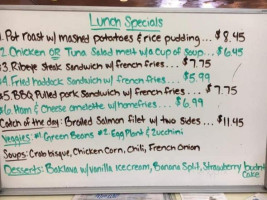 Lunch Specials
1. Pot roast w/ mashed potatoes & rice pudding... $8.45
2. Chicken OR Tuna Salad melt w/a cup of soup... $6.45
#3. Ribeye Steak Sandwich w/ french fries... $7.75
#4. Fried haddock Sandwich w/ french fries... $5.99
#5. BBQ Pulled pork Sandwich w/ french fries... $7.75
#6. Ham & Cheese omelette w/ homefries... $6.99
Catch of the day: Broiled Salmon filet w/ two sides... $11.45
Veggies: #1 Green Beans #2 Egg Plant & Zucchini
Soups: Crab bisque, Chicken Corn, Chili, French Onion
Desserts: Baklava w/vanilla ice cream, Banana Split, Strawberry
Cake